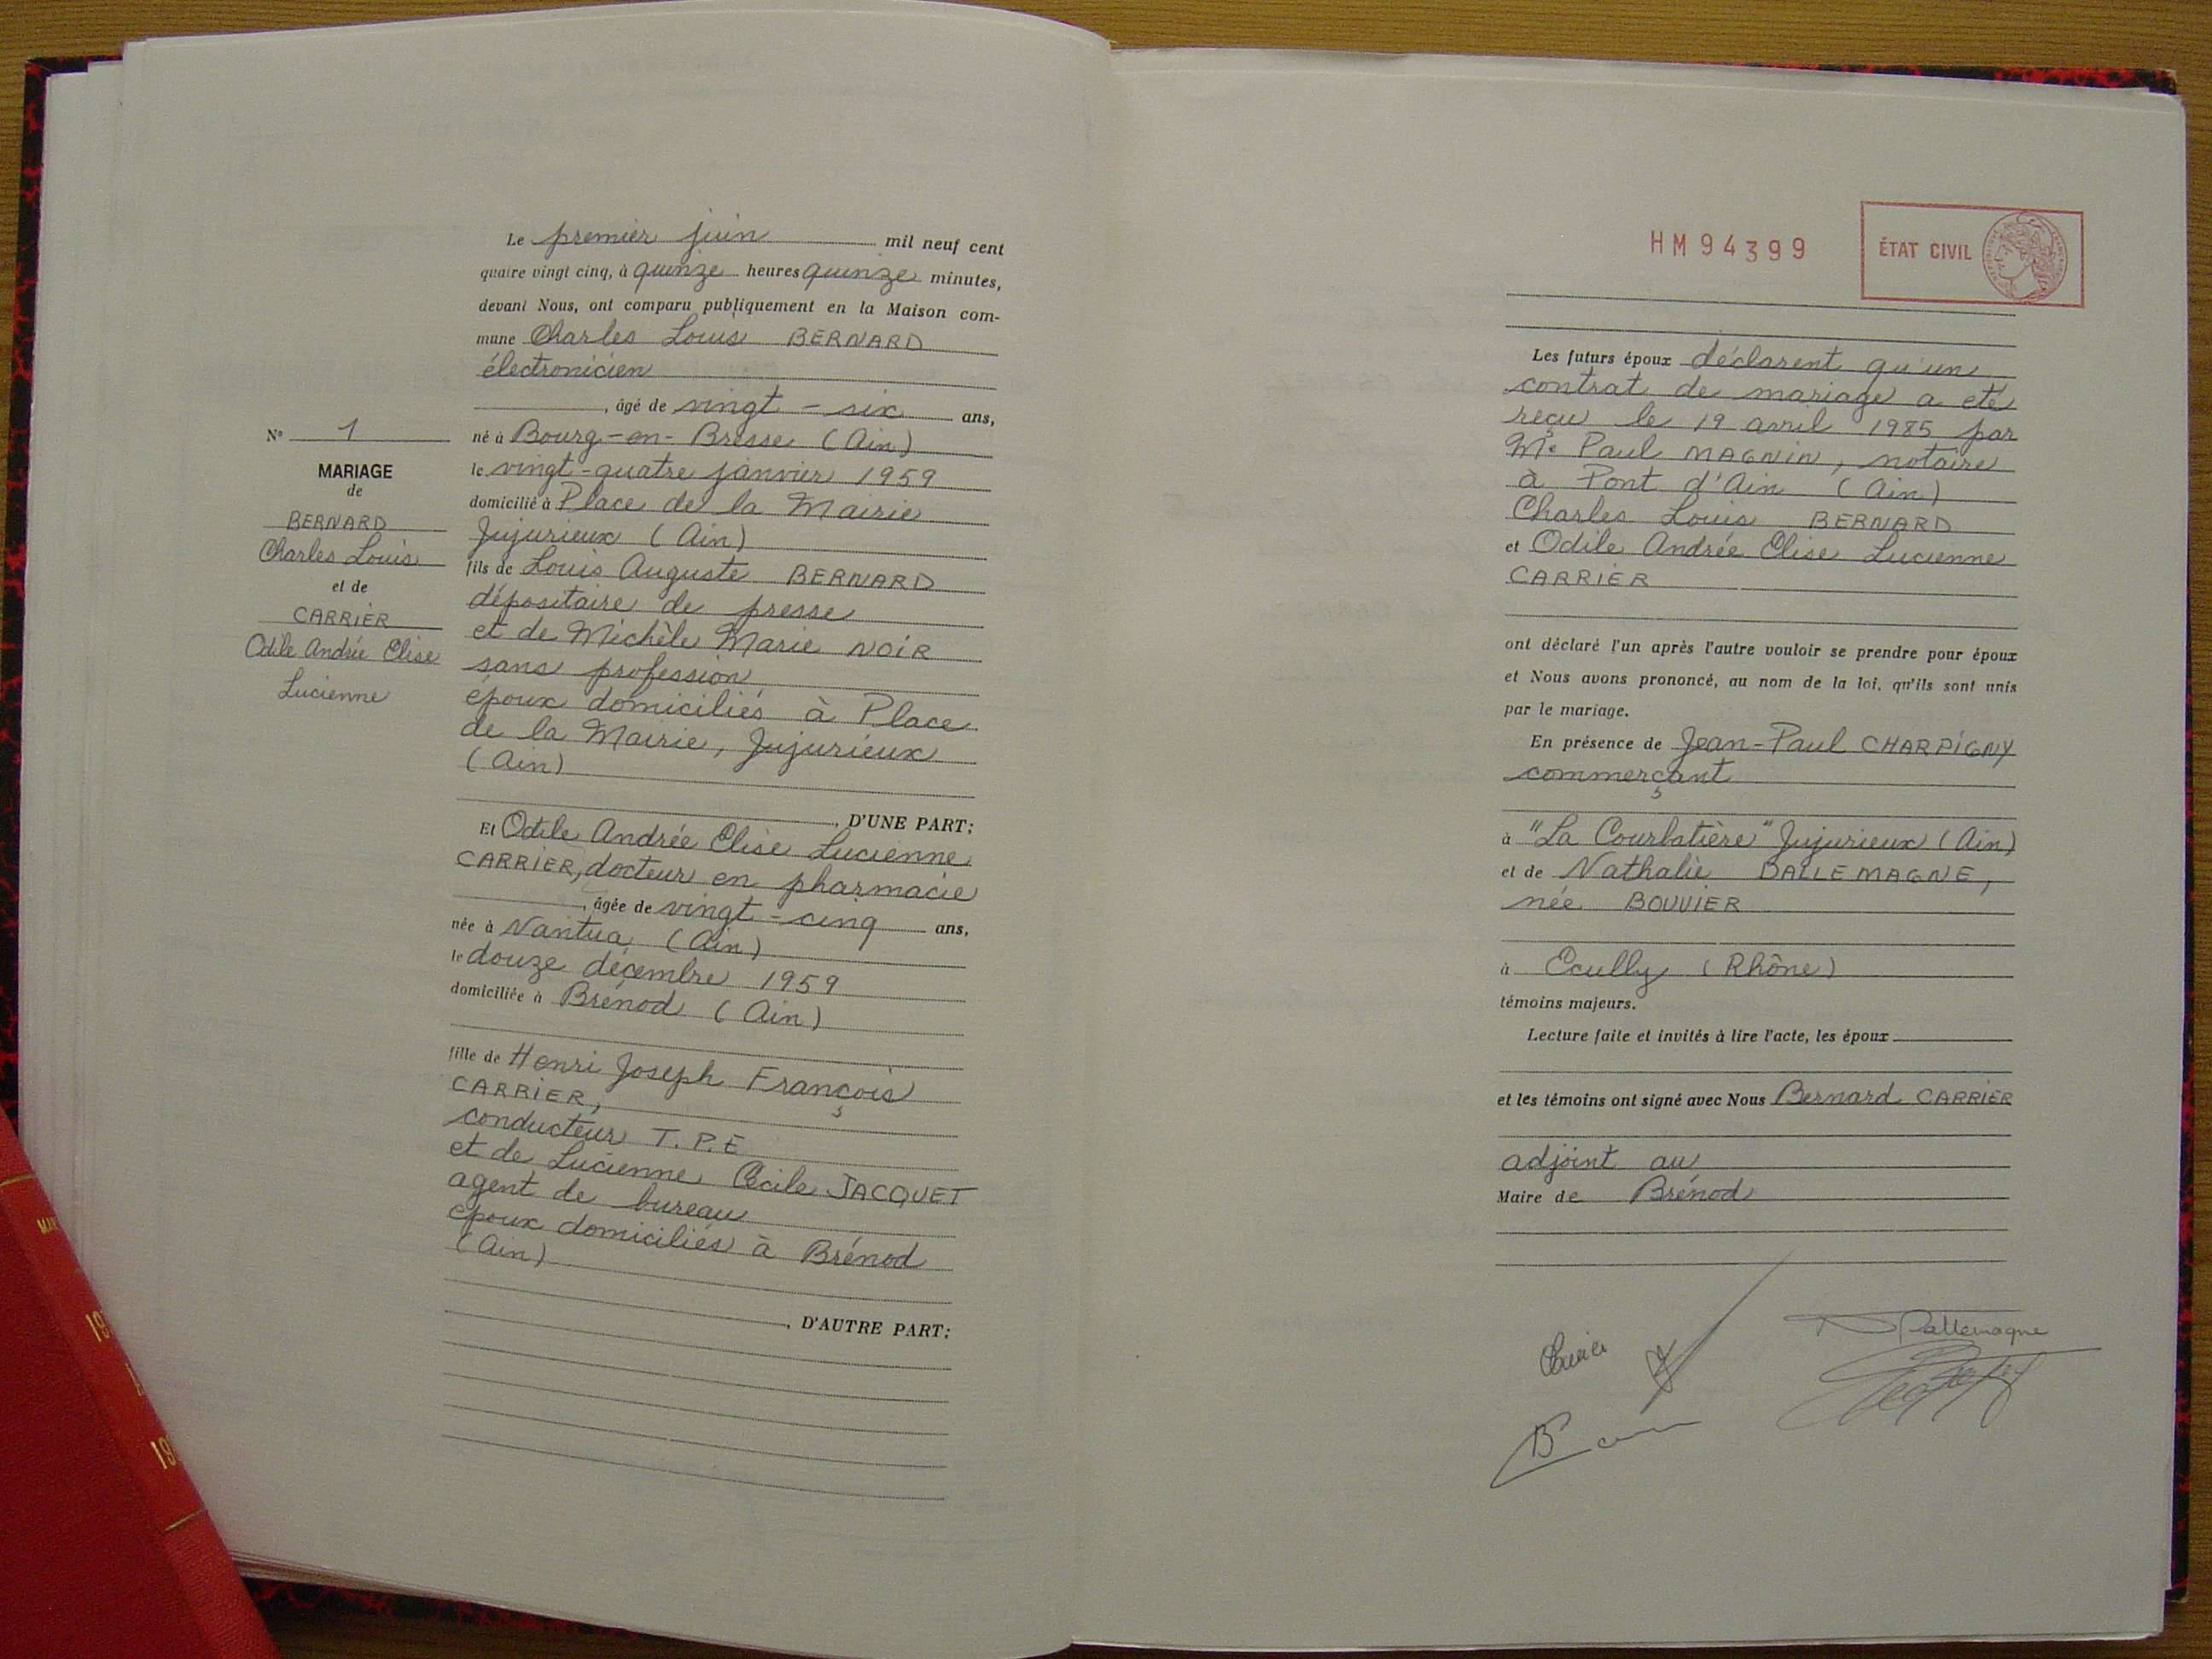 Le premier juin mil neuf cent
quatre vingt cinq, à quinze heures quinze minutes,
devant Nous, ont comparu publiquement en la Maison com-
mune Charles Louis BERNARD
électronicien
, âgé de vingt-six ans,
né à Bourg-en-Bresse (Ain)
le vingt-quatre janvier 1959
domicilié à Place de la Mairie
Jujurieux (Ain)
fils de Louis Auguste BERNARD
dépositaire de presse
et de Michèle Marie NOIR
sans profession
époux domiciliés à Place
de la Mairie, Jujurieux
(Ain)
, D'UNE PART;
Et Odile Andrée Elise Lucienne
CARRIER, docteur en pharmacie
, âgée de vingt-cinq ans,
née à Nantua (Ain)
le douze décembre 1959
domiciliée à Brénod (Ain)
fille de Henri Joseph François
CARRIER,
conducteur T.P.E
et de Lucienne Cécile JACQUET
agent de bureau
époux domiciliés à Brénod
(Ain)
, D'AUTRE PART;
N° 1
MARIAGE
de
BERNARD
Charles Louis
et de
CARRIER
Odile Andrée Elise
Lucienne
HM94399
ÉTAT CIVIL
Les futurs époux déclarent qu'un
contrat de mariage a eté
reçu le 19 avril 1985 par
Me Paul MAGNIN, notaire
à Pont d'Ain (Ain)
Charles Louis BERNARD
et Odile Andrée Elise Lucienne
CARRIER
ont déclaré l'un après l'autre vouloir se prendre pour époux
et Nous avons prononcé, au nom de la loi, qu'ils sont unis
par le mariage.
En présence de Jean-Paul CHARPIGNY
commerçant
à "La Courbatière" Jujurieux (Ain)
et de Nathalie DALLEMAGNE,
née BOUVIER
à Ecully (Rhône)
témoins majeurs.
Lecture faite et invités à lire l'acte, les époux
et les témoins ont signé avec Nous Bernard CARRIER
adjoint au
Maire de Brénod
Dallemagne